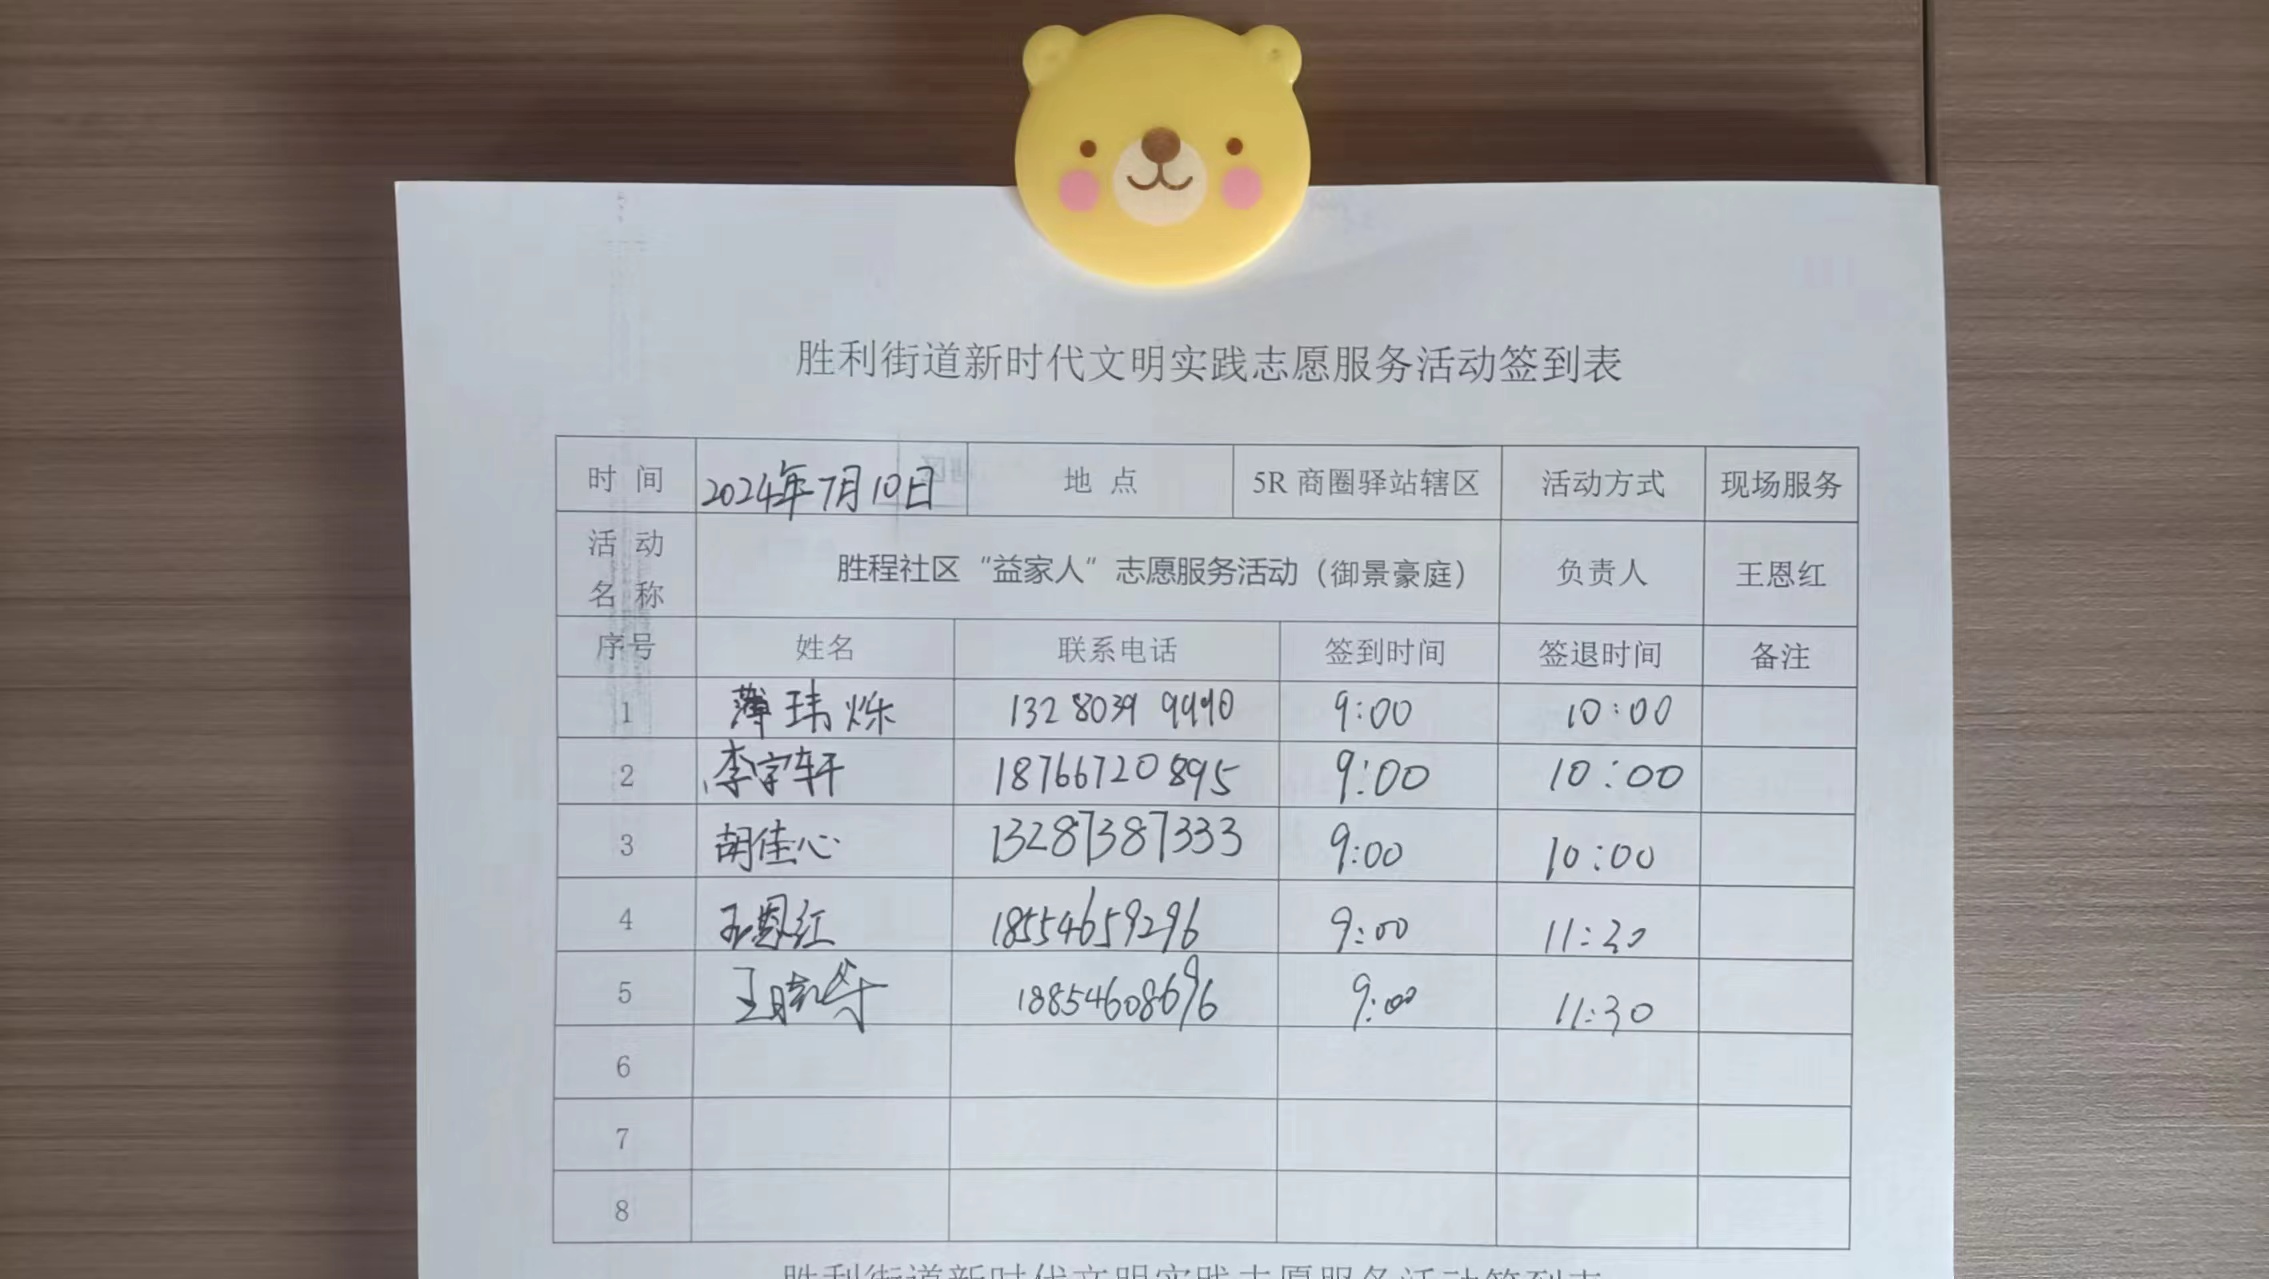 胜利街道新时代文明实践志愿服务活动签到表
时 间 2024年7月10日 地 点 5R 商圈驿站辖区 活动方式 现场服务
活 动 名 称 胜程社区“益家人”志愿服务活动（御景豪庭） 负责人 王恩红
序号 姓名 联系电话 签到时间 签退时间 备注
1 薄玮烁 132 8039 9990 9:00 10:00
2 李宇轩 18766720895 9:00 10:00
3 胡佳心 13287387333 9:00 10:00
4 王恩红 18554659296 9:00 11:30
5 18854608696 9:00 11:30
6
7
8
胜利街道新时代文明实践志愿服务活动签到表